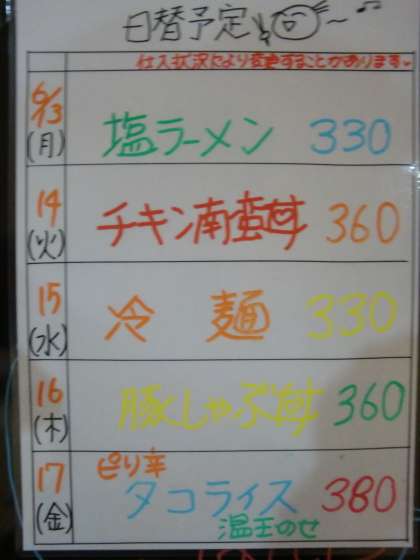 日替予定
仕入状況により変更することがあります。
6/13 (月) 塩ラーメン 330
14 (火) チキン南蛮丼 360
15 (水) 冷麺 330
16 (木) 豚しゃぶ丼 360
17 (金) ピリ辛 タコライス 380
温玉のせ